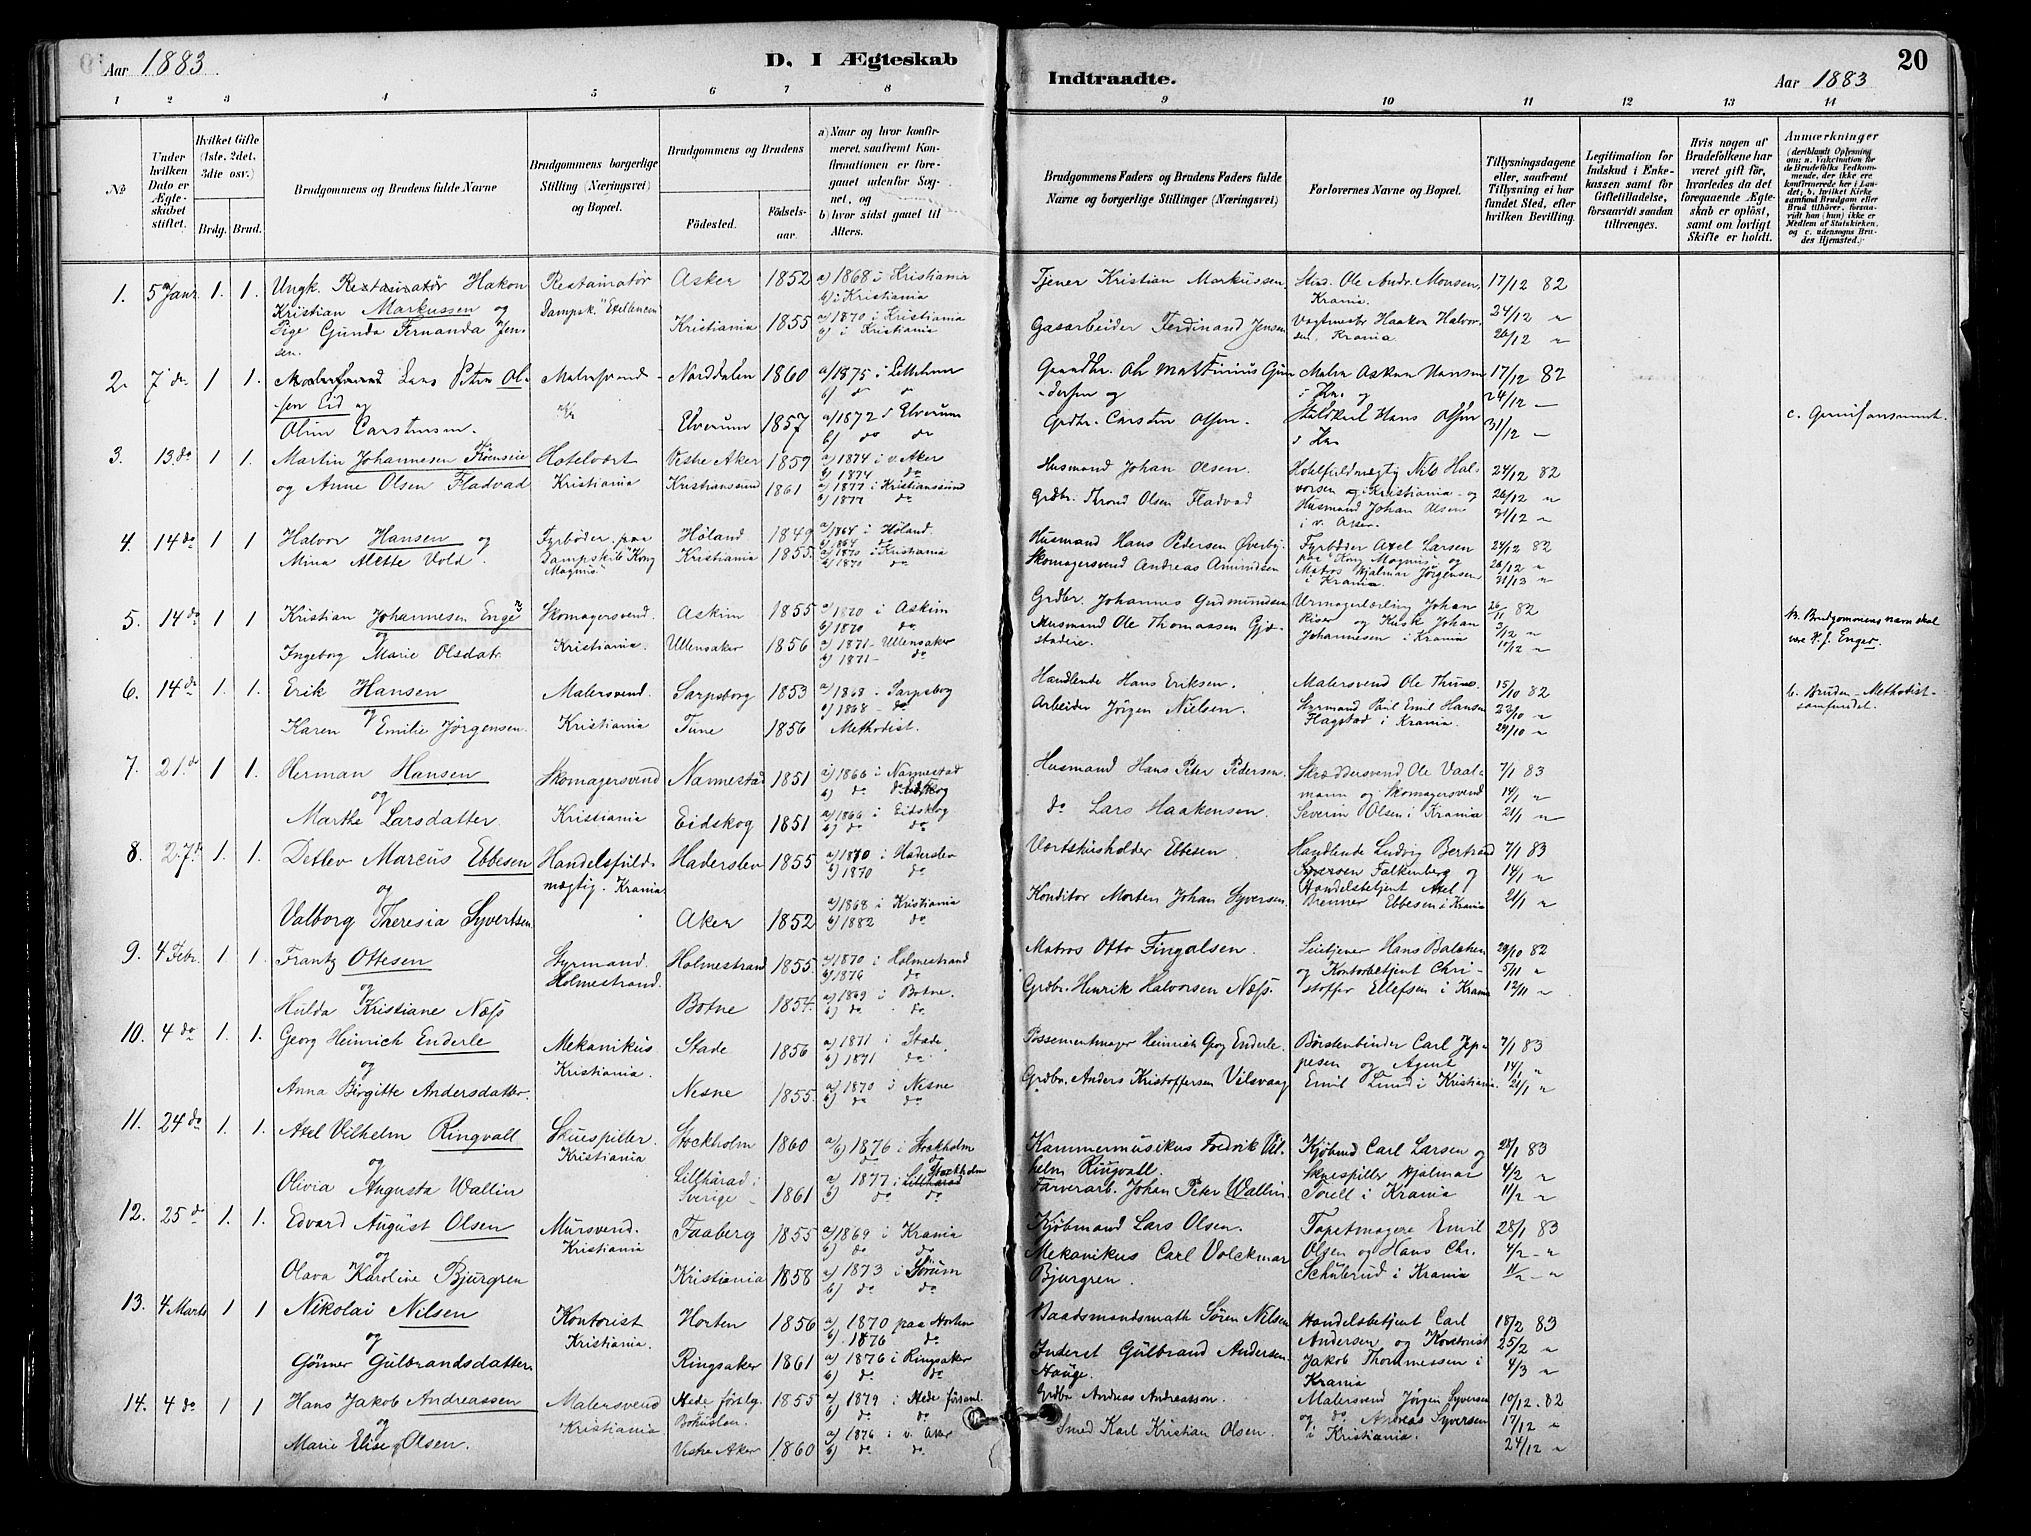 Aar 1883.
D. I Ægteskab
Indtraadte.
20
Aar 1883
1 2 3 4 5 6 7 8 9 10 11 12 13 14
No
Under hvilken Dato er Ægteskabet stiftet.
Hvilket Gifte (1ste, 2det, 3die osv.)
Brdg. Brud.
Brudgommens og Brudens fulde Navne
Brudgommens borgerlige Stilling (Næringsvei) og Bopæl.
Brudgommens og Brudens
Fødested.
Fødselsaar.
a) Naar og hvor konfirmeret, saafremt Konfirmationen er foregaaet udenfor Sognet, og
b) hvor sidst gaaet til Alters.
Brudgommens Faders og Brudens Faders fulde Navne og borgerlige Stillinger (Næringsvei)
Forlovernes Navne og Bopæl.
Tillysningsdagene eller, saafremt Tillysning ei har fundet Sted, efter hvilken Bevilling.
Legitimation for Indskud i Enkekassen samt for Giftetilladelse, forsaavidt saadan tiltrænges.
Hvis nogen af Brudefolkene har været gift før, hvorledes da det foregaaende Ægteskab er opløst, samt om lovligt Skifte er holdt.
Anmærkninger
(deriblandt Oplysning om: a. Vakcination for de Brudefolks Vedkommende, der ikke ere konfirmerede her i Landet; b. hvilket Kirkesamfund Brudgom eller Brud tilhører, forsaavidt han (hun) ikke er Medlem af Statskirken, og c. udensogns Brudes Hjemsted.)
1. 5 Janr. 1. 1. Ungk. Restauratør Hakon Restauratør Asker 1852 a) 1868 i Kristiania Tjener Kristian Markussen Ole Andr. Monsen, 17/12 82
Kristian Markussen og Dampsk. b) i Kristiania Krania.
Pige Gunda Fernanda Jensen. Kristiania 1855 a) 1870 i Kristiania Gasarbeider Ferdinand Jensen Haakon Halvorsen, Krania 24/12 "
b) i Kristiania 26/12 "
2. 7 do 1 1. Lars Peter Olsen Eid og Malersvend Norddalen 1860 a) 1875 i 17/12 82
b) do do og 24/12 -
Oline Carstensen. Elverum 1857 a) 1872 i Elverum Grdbr. Carsten Olsen. Staldkarl Hans Olsen 31/12 -
b) do do c.
3. 13. do 1 1. Martin Johannesen Hotelvært Vestre Aker 1857 a) 1874 i v. Aker Husmand Johan Olsen. Hotelfuldmægtig Nils Halvorsen 24/12 82
b) 1874 do
og Anne Olsen Fladvad Kristiania Kristianssund 1861 a) 1877 i Kristianssund Grdbr. Thrond Olsen Fladvad i Kristiania og 26/12 "
b) 1877 do Husmand Johan Olsen i v. Aker. 31/12 "
4. 14 do 1 1. Halvor Hansen og Fyrbøder paa Høland 1849 a) 1864 i Høland. Husmand Hans Pedersen Øverby. Fyrbøder Axel Larsen 24/12 82
b) 1864 do
Mina Alette Vold. Dampskib "Kong Magnus" Kristiania 1855. a) 1870 i Kristiania Skomagersvend Andreas Amundsen paa "Kong Magnus" og 26/12 "
b) 1870 do Matros Hjalmar Jørgensen i Krania. 21/13 "
5. 14 do 1 1 Kristian Johannesen Enge Skomagersvend. Askim 1855 a) 1870 i Askim Grdbr. Johannes Gudmundsen Urmagerlærling Johan 26/11 82
og Kristiania. b) 1870 do Riser og Kusk Johan 3/12 " b. Brudgommens navn skal
Ingeborg Marie Olsdatr. Ullensaker 1856 a) 1871 - Ullensaker Husmand Ole Thomassen Johannesen i Krania 10/12 " være K. J. Enger.
b) 1871 - do
6. 14 do 1. 1. Erik Hansen Malersvend. Sarpsborg 1853 a) 1868 - Sarpsborg Handlende Hans Eriksen. Malersvend Ole Thune. 15/10 82 b. Bruden - Methodist-
og Kristiania b) 1868 - do Styrmand Paul Emil Hansen 22/10 " samfundet.
Karen Emilie Jørgensen. Tune 1856 Methodist. Arbeider Jørgen Nielsen. Flagstad i Krania. 29/10 "
7. 21. do 1 1. Herman Hansen Skomagersvend Nannestad 1851 a) 1866 i Nannestad Husmand Hans Peter Pedersen. Skræddersvend Ole Vaalmann 7/1 83
og b) do do og Skomagersvend 14/1 "
Marthe Larsdatter. Kristiania. Eidskog 1851 a) 1866 i Eidskog do Lars Haakensen. Severin Olsen i Krania 21/1 "
b) do do
8. 27. 1. 1. Detlev Marcus Ebbesen Handelsfuldmægtig. Krania Haderslev 1855 a) 1870 i Haderslev Værtshusholder Ebbesen Handlende Ludvig Bertrad 7/1 83
og b) 1870 do Iversen Falkenberg og 14/1 "
Valborg Theresia Syvertsen Aker 1852 a) 1868 i Kristiania Konditor Morten Johan Syversen. Handelsbetjent Axel Brenner Ebbesen i Krania 21/1 "
b) 1882 do
9. 4 Febr. 1. 1. Frantz Ottesen Styrmand. Holmestrand 1855. a) 1870 i Holmestrand Matros Otto Fingalsen. Hans 29/10 82
og Holmestrand. b) 1876 do og Kontorbetjent Christoffer 5/11 "
Hulda Kristiane Næss Botne 1854. a) 1869 i Botne. Grdbr. Henrik Halvorsen Næss. Ellefsen i Krania 12/11 "
b) do do
10. 4 do 1. 1. Georg Heinrich Enderle Mekanikus Stade 1856 a) 1871 i Stade Possementmager Heinrich Georg Enderle. Børstenbinder Carl Jeppesen 7/1 83
og Kristiania. b) 1871 do og Agent 14/1 "
Anna Birgitte Andersdatter. Nesne 1855. a) 1870 i Nesne Grdbr. Anders Kristoffersen Vilsvaag Emil Lund i Kristiania. 21/1 "
b) do do
11. 24 do 1. 1. Axel Vilhelm Ringvall Skuespiller. Stockholm 1860 a) 1876 i Stockholm Kammermusikus Fredrik Vilhelm Ringvall. Kjøbmd Carl Larsen og 28/1 83
og Kristiania b) do do Skuespiller Hjalmar 4/2 "
Olivia Augusta Wallin Lillhärad i Sverige 1861 a) 1877 i Lillhärad Stockholm Farverarb. Johan Peter Wallin. Torell i Krania 11/2 "
b) do do
12. 25 do 1. 1. Edvard August Olsen Mursvend. Faaberg 1855 a) 1869 i Krania Kjøbmand Lars Olsen. Tapetmagere Emil 28/1 83
og Kristiania b) do do Olsen og Hans Chr. 4/2 - "
Olava Karoline Bjurgren Kristiania 1858 a) 1873 i Sørum Mekanikus Carl Volckmar Bjurgren. Schüberud i Krania 11/2 - "
b) do do
13. 4 Marts 1 1 Nikolai Nilsen Kontorist Horten 1856 a) 1870 paa Horten Baadsmandsmath Søren Nilsen Handelsbetjent Carl 18/2 83
og Kristiania. b) 1876 do Andersen og Kontorist 25/2 "
Gønner Gulbrandsdatter Ringsaker 1861 a) 1876 i Ringsaker Inderst Gulbrand Andersen Hauge. Jakob Thommessen i Krania 4/3 "
b) do do
14. 4 do 1 1 Hans Jakob Andreassen Malersvend Hede förslg. Bohuslen. 1855 a) 1879 i Hede församl. Grdbr. Andreas Andreasson. Malersvend Jørgen Syversen 10/12. 82
og Kristiania b) do do og do Andreas Syversen 17/12 "
Marie Elise Olsen. Vestre Aker 1860 a) 1876 i v. Aker Smed Karl Kristian Olsen. i Kristiania. 24/12 "
b) do do